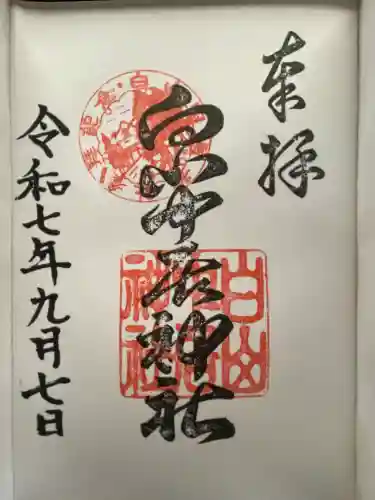 奉拝
白山中居神社
白山
神社
令和七年九月七日